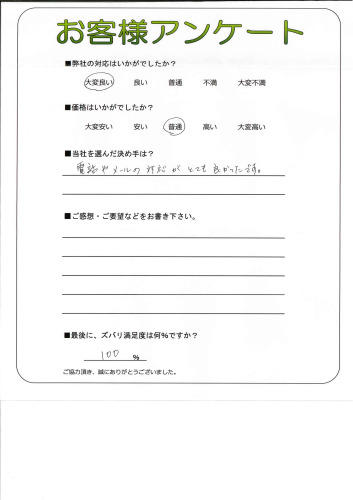 お客様アンケート
■弊社の対応はいかがでしたか？
大変良い 良い 普通 不満 大変不満
■価格はいかがでしたか？
大変安い 安い 普通 高い 大変高い
■当社を選んだ決め手は？
電話やメールの対応がとても良かったです。
■ご感想・ご要望などをお書き下さい。
■最後に、ズバリ満足度は何％ですか？
100 %
ご協力頂き、誠にありがとうございました。